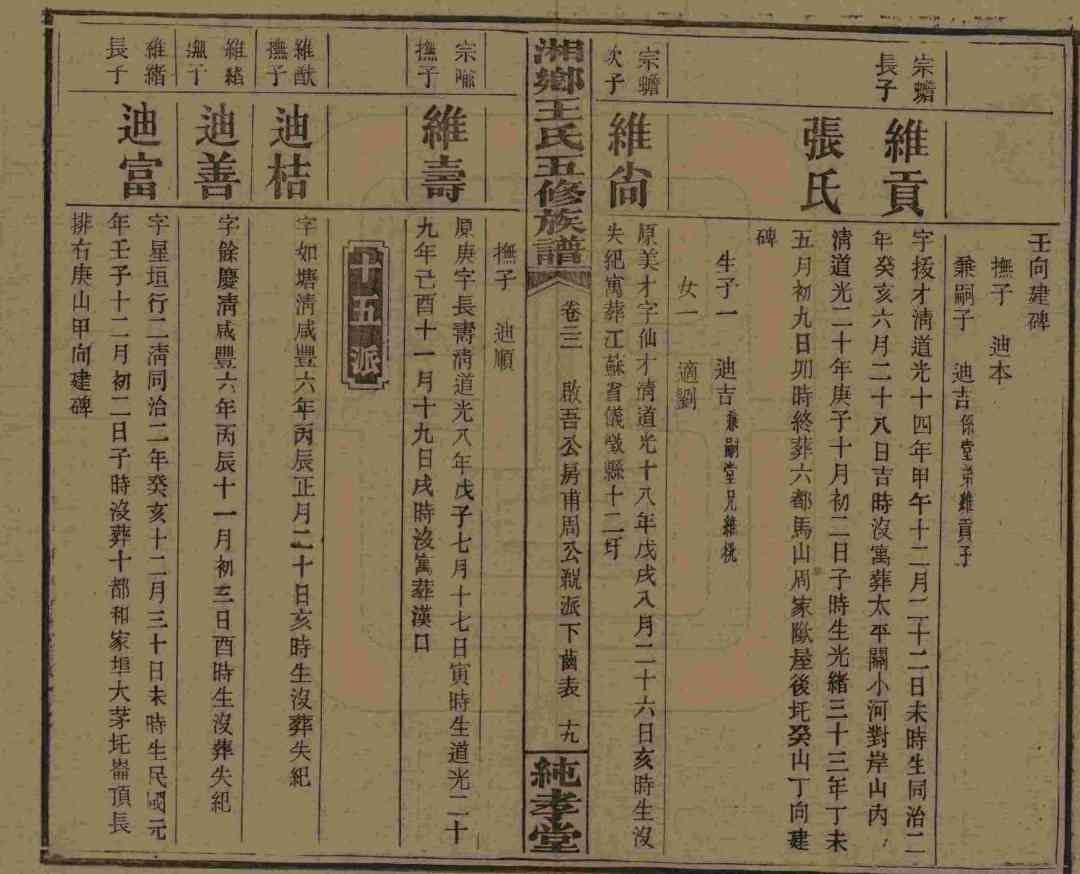 壬向建碑
撫子 迪本
兼嗣子 迪吉係堂弟維貢子
宗蟾
長子
維貢
字拔才清道光十四年甲午十二月二十二日未時生同治二
年癸亥六月二十八日吉時沒寓葬太平關小河對岸山內
張氏
清道光二十年庚子十月初二日子時生光緒三十三年丁未
五月初九日卯時終葬六都馬山周家歐屋後圫癸山丁向建
碑
生子一 迪吉兼嗣堂兄維桃
女一 適劉
宗蟾
次子
維尙
原美才字仙才清道光十八年戊戌八月二十六日亥時生沒
失紀寓葬江蘇省儀徵縣十二圩
湘鄉王氏五修族譜
卷三三 啟吾公房甫周公親派下齒表 十九
純孝堂
撫子 迪順
宗喩
撫子
維壽
原庚字長壽清道光八年戊子七月十七日寅時生道光二十
九年己酉十一月十九日戌時沒寓葬漢口
十五派
維猷
撫子
迪桔
字如塘清咸豐六年丙辰正月二十日亥時生沒葬失紀
維緒
撫子
迪善
字餘慶清咸豐六年丙辰十一月初三日酉時生沒葬失紀
維緒
長子
迪富
字星垣行二清同治二年癸亥十二月三十日未時生民國元
年壬子十二月初二日子時沒葬十都和家埠大茅圫崙頂長
排右庚山甲向建碑